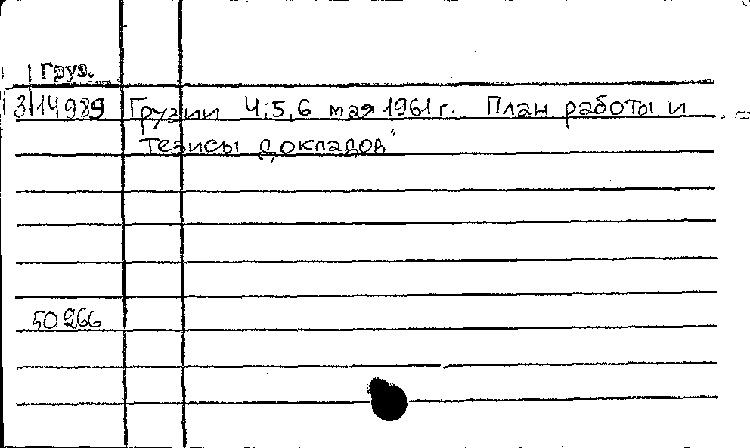 Груз.
3/14989 Грузии 4,5,6 мая 1961 г. План работы и
тезисы докладов"
50266